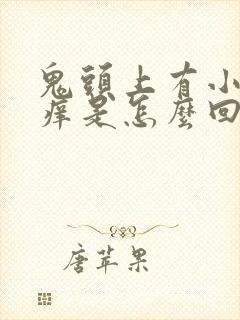 鬼頭上有小
痒是怎麼回
唐苹果